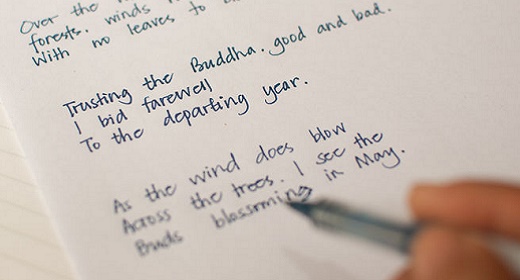 Over the
forests. winds
With no leaves to
Trusting the Buddha. good and bad.
I bid farewell
To the departing year.
As the wind does blow
Across the trees. I see the
Buds blossming in May.